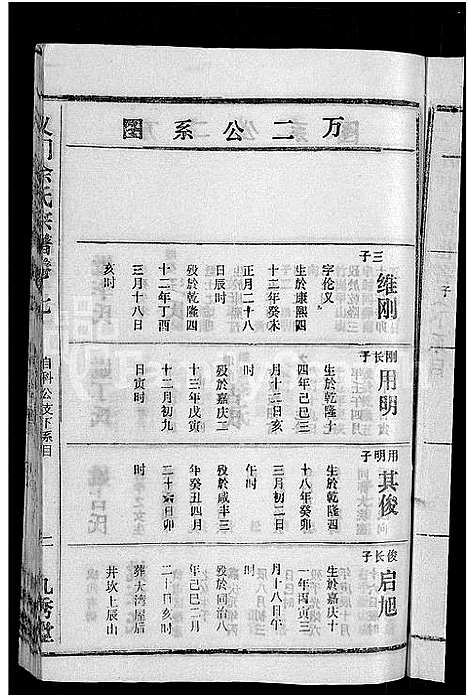 万二公系图
三子
维刚
字伦义
生於康熙四
十二年癸未
正月二十八
日辰时
殁於乾隆四
十二年丁酉
三月十八日
亥时
刚长子
用明
生於乾隆十
四年己巳三
月十二日亥
时
殁於嘉庆二
十三年戊寅
十二月初九
日寅时
用明子
其俊
生於乾隆四
十八年癸卯
三月初二日
午时
殁於咸丰三
年癸丑四月
二十六日卯
时
俊长子
启旭
生於嘉庆十
一年丙寅三
月十八日午
时
殁於同治八
年己巳二月
二十日亥时
葬大湾屋后
井坎上辰山
义门余氏宗谱卷七
自科公支下系目
二